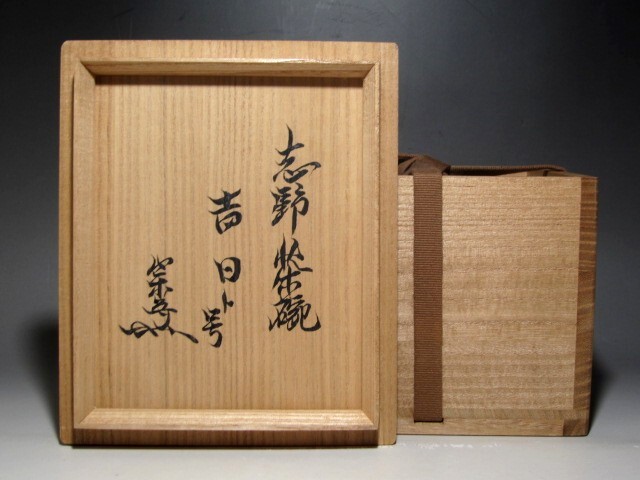 志野茶碗
吉日ト号